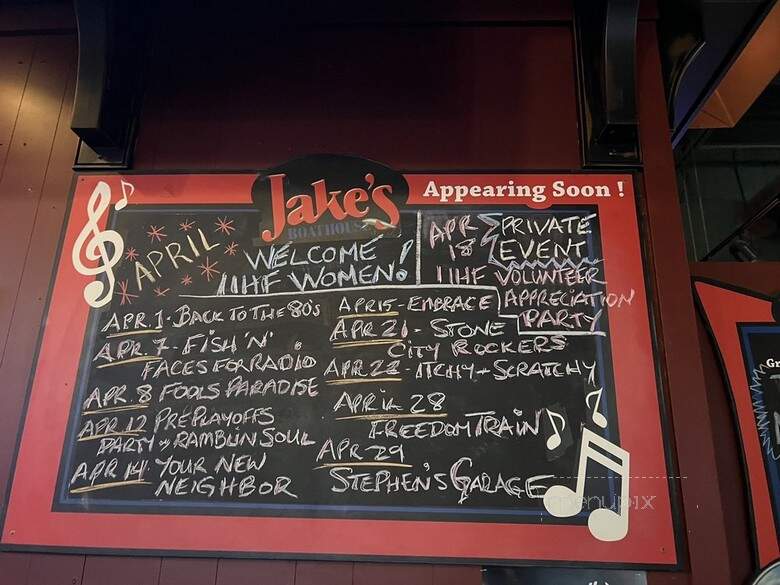 Jake's
BOATHOUSE
Appearing Soon !
APRIL
WELCOME
IIHF WOMEN!
APR 18
PRIVATE
EVENT
IIHF VOLUNTEER
APPRECIATION
PARTY
APR. 1 - BACK TO THE 80's
APR. 7 - FISH 'N'
FACES FOR RADIO
APR. 8 FOOLS PARADISE
APR. 12 PREPLAYOFFS
PARTY w RAMBLIN SOUL
APR 14 YOUR NEW
NEIGHBOR
APR 15 - EMBRACE
APR. 21 - STONE
CITY ROCKERS
APR 22 - ITCHY + SCRATCHY
APRIL 28
FREEDOM TRAIN
APR 29
STEPHEN'S GARAGE
menupix